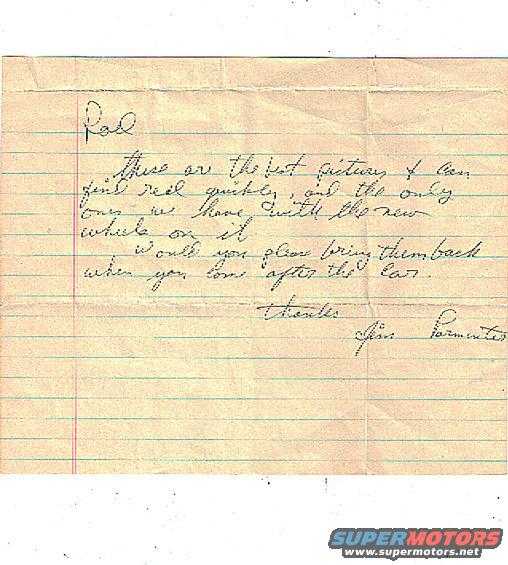 Rod
these are the best pictures I can
find real quickly, and the only
ones we have with the new
wheels on it
would you please bring them back
when you come after the Car.
thanks
Jim Parmenter
SUPERMOTORS
www.supermotors.net